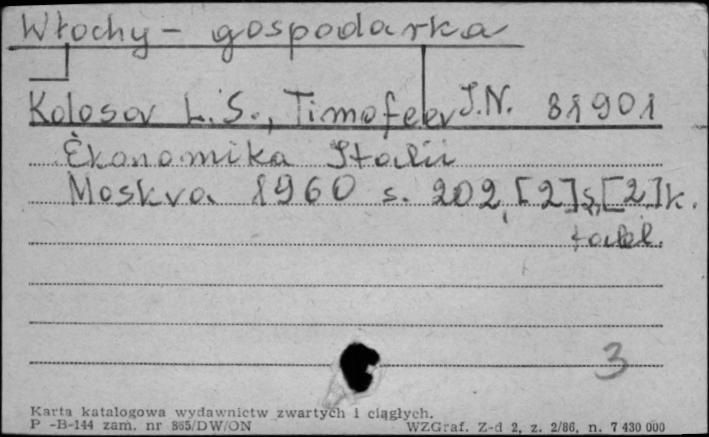 Włochy - gospodarka
Kolosov L.S., Timofeev I.N. 81901
Èkonomika Italii
Moskva 1960 s. 202, [2]s, [2]k.
tabl.
3
Karta katalogowa wydawnictw zwartych i ciągłych.
P -B-144 zam. nr 865/DW/ON WZGraf. Z-d 2, z. 2/86, n. 7 430 000